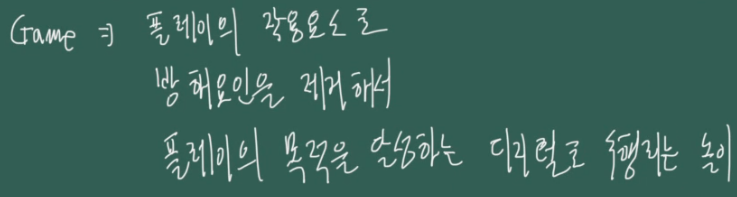 Game ⇒ 플레이의 작용요소로
방해요인을 제거해서
플레이의 목적을 달성하는 디지털로 수행되는 놀이